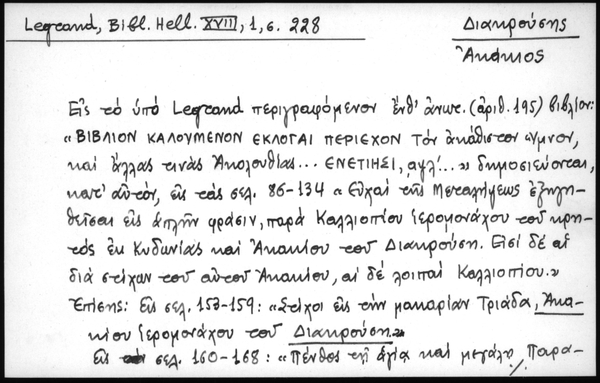 Legrand, Bibl. Hell. XVIII, 1, σ. 228
Διακρούσης
Ἀκάκιος
Εἰς τό ὑπό Legrand περιγραφόμενον ἔνθ' ἀνωτ. (ἀριθ. 195) βιβλίον:
«ΒΙΒΛΙΟΝ ΚΑΛΟΥΜΕΝΟΝ ΕΚΛΟΓΑΙ ΠΕΡΙΕΧΟΝ τόν ἀκάθιστον ὕμνον,
καί ἄλλας τινάς Ἀκολουθίας... ΕΝΕΤΙΗΣΙ, ͵αψλ'...» δημοσιεύονται,
κατ' αὐτόν, εἰς τάς σελ. 86-134 «Εὐχαί τῆς Μεταλήψεως ἐξηγη-
θεῖσαι εἰς ἁπλῆν φράσιν, παρά Καλλιοπίου ἱερομονάχου τοῦ κρη-
τός ἐκ Κυδωνίας καί Ἀκακίου τοῦ Διακρούση. Εἰσί δέ αἱ
διά στίχων τοῦ αὐτοῦ Ἀκακίου, αἱ δέ λοιπαί Καλλιοπίου.»
Ἐπίσης: Εἰς σελ. 153-159: «Στίχοι εἰς τήν μακαρίαν Τριάδα, Ἀκα-
κίου ἱερομονάχου τοῦ Διακρούση.»
Εἰς σελ. 160-168: «Πένθος τῇ ἁγίᾳ καί μεγάλῃ Παρα-